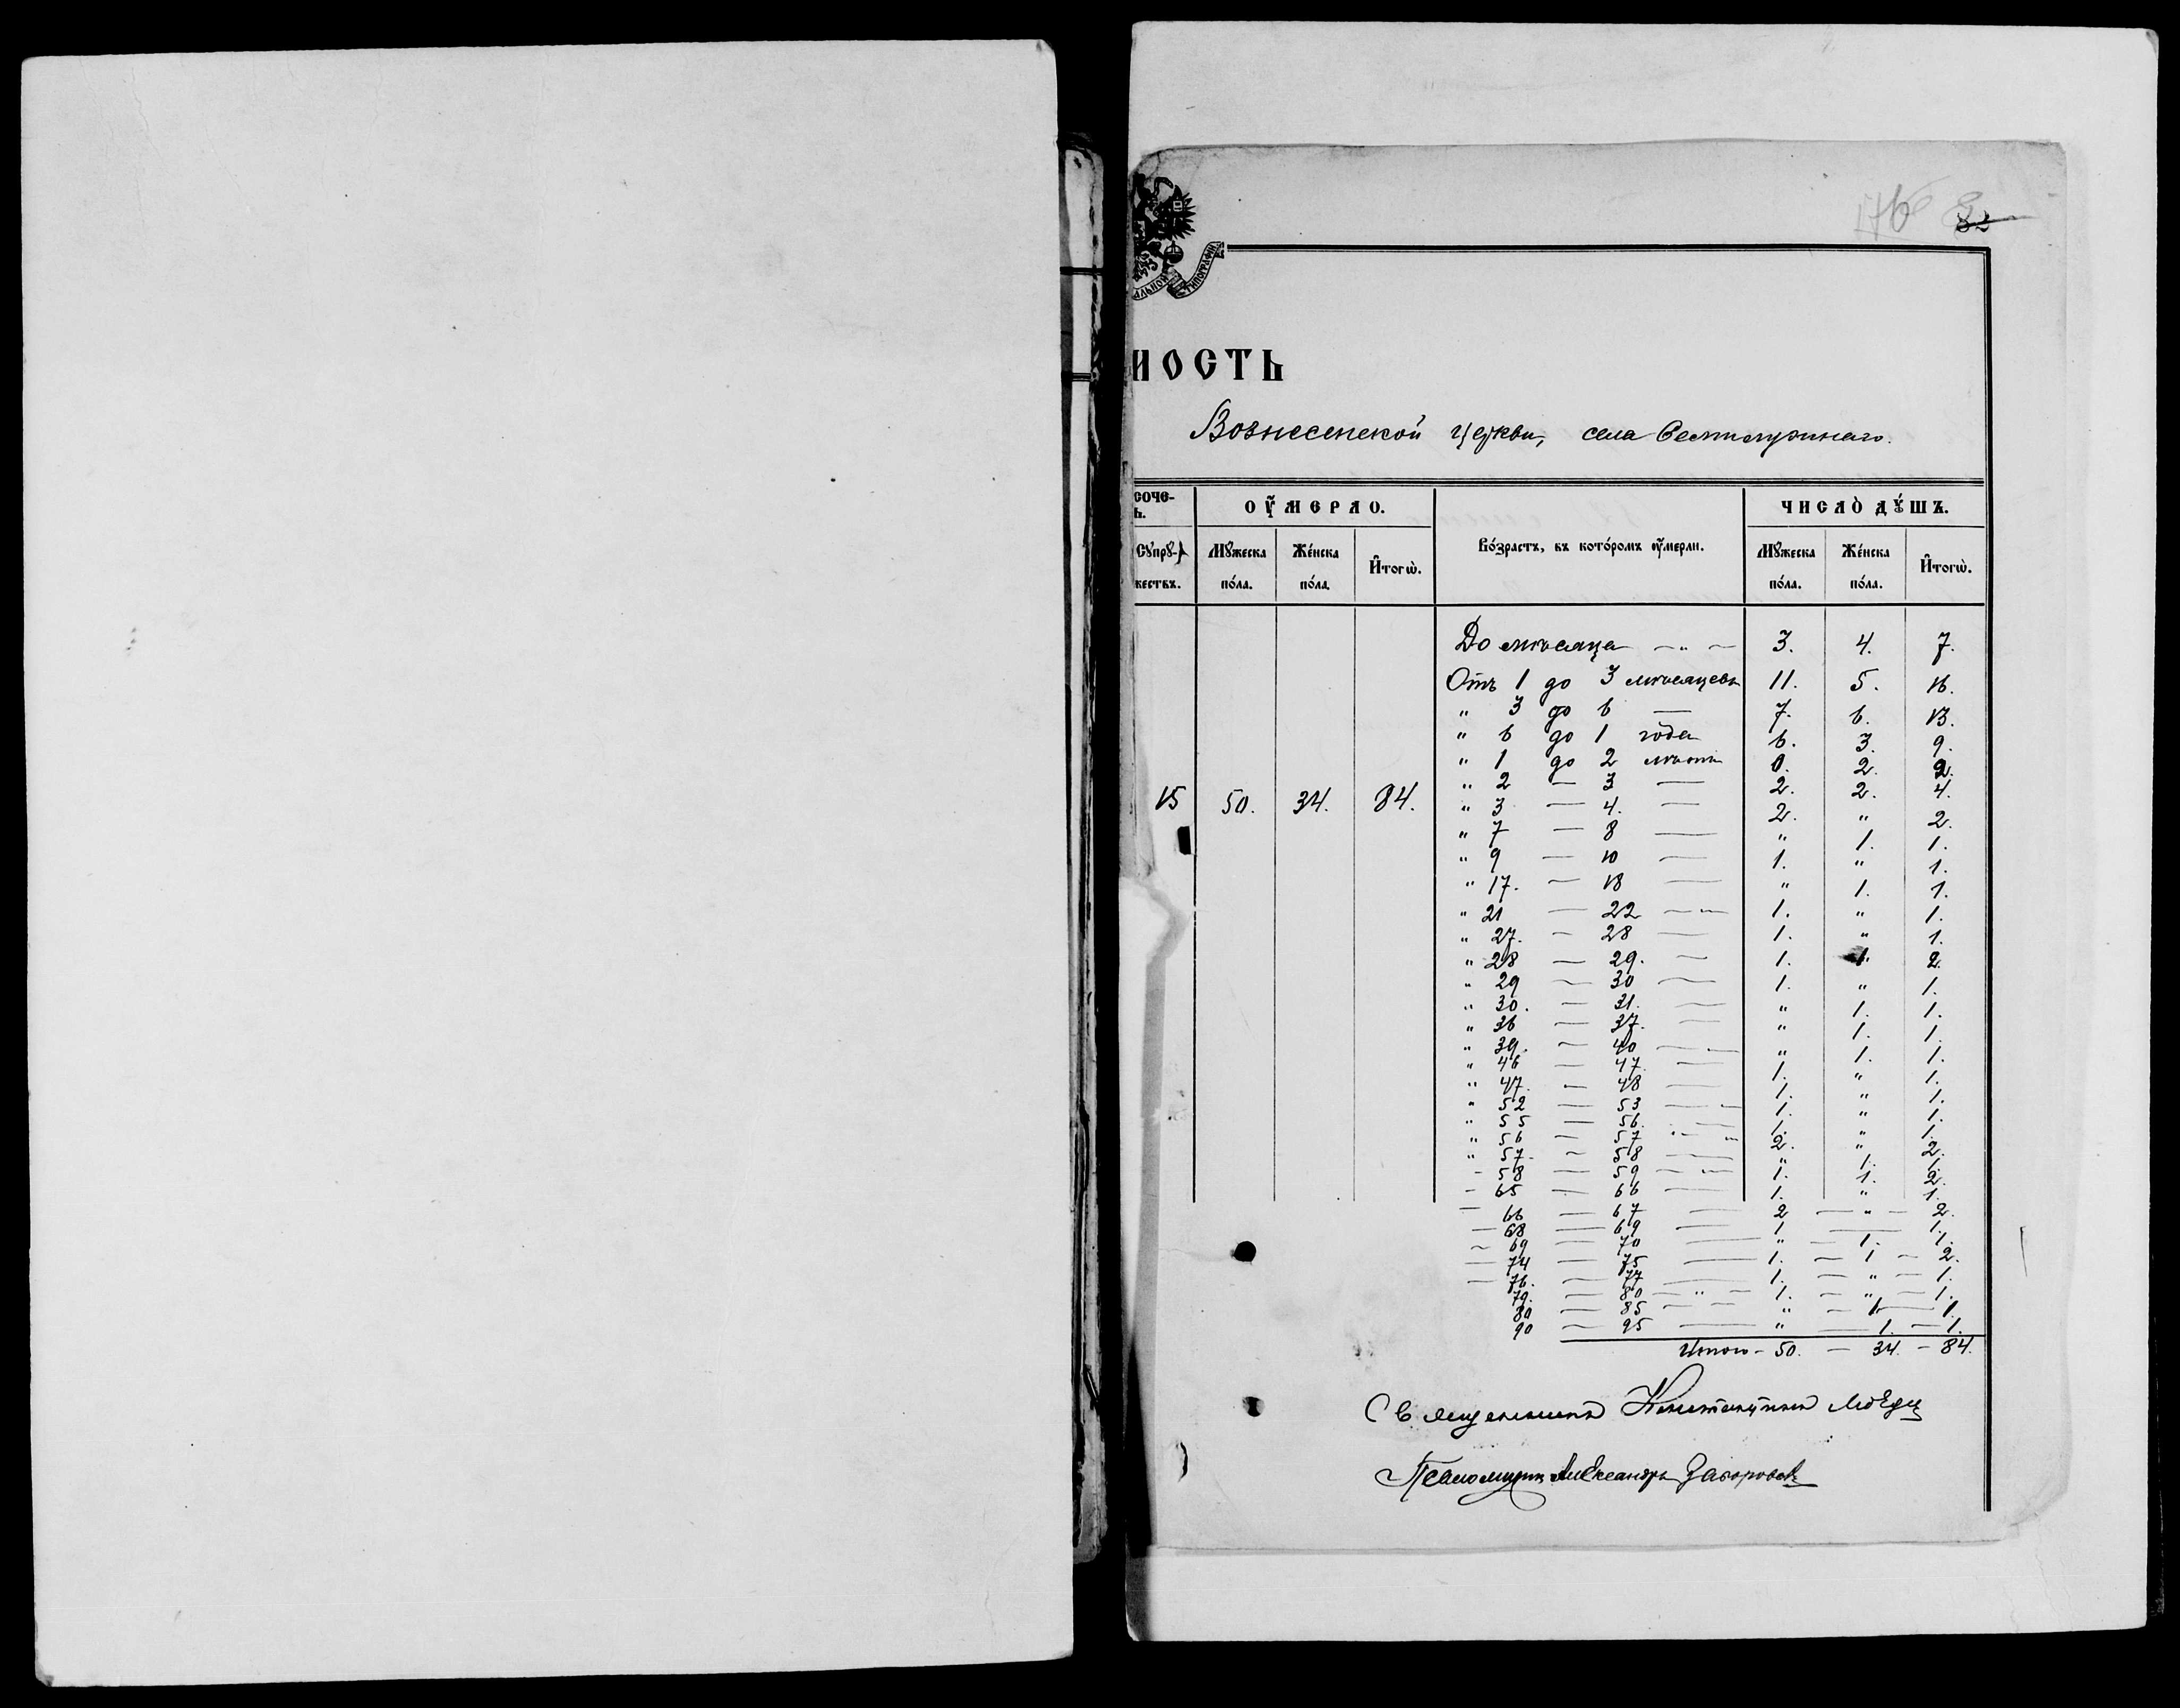 176 32
АЛЬНОЙ ТИПОГРАФІИ
НОСТЬ
Вознесенской церкви, села
СОЧЕ-
Ъ.
ОУМЕРЛО.
ЧИСЛО ДꙊШЪ.
Сꙋпрꙋ-
жествъ.
Мꙋжеска пола.
Женска пола.
Итогѡ.
Возрастъ, въ которомъ оумерли.
Мꙋжеска пола.
Женска пола.
Итогѡ.
До месяца — „ — 3. 4. 7.
Отъ 1 до 3 месяцевъ 11. 5. 16.
„ 3 до 6 — 7. 6. 13.
„ 6 до 1 года 6. 3. 9.
„ 1 до 2 летъ 0. 2. 2.
„ 2 — 3 — 2. 2. 4.
15 50. 34. 84.
„ 3 — 4. — 2. „ 2.
„ 7 — 8 — „ 1. 1.
„ 9 — 10 — 1. „ 1.
„ 17. — 18 — „ 1. 1.
„ 21 — 22 — 1. „ 1.
„ 27. — 28 — 1. „ 1.
„ 28 — 29. — 1. 1. 2.
„ 29 — 30 — 1. „ 1.
„ 30. — 31. — „ 1. 1.
„ 36 — 37. — „ 1. 1.
„ 39. — 40 — „ 1. 1.
„ 46 — 47. — 1. „ 1.
„ 47. — 48 — 1. „ 1.
„ 52 — 53 — 1. „ 1.
„ 55 — 56. — 1. „ 1.
„ 56 — 57 — 2. „ 2.
„ 57. — 58 — „ 1. 1.
— 58 — 59 — 1. 1. 2.
— 65 — 66 — 1. „ 1.
— 66 — 67 — 2 — „ — 2.
— 68 — 69 — 1 — 1.
— 69 — 70 — „ — 1. 1.
— 74 — 75 — 1. — 1 — 2.
— 76. — 77 — 1. — „ — 1.
79. — 80 — „ — 1. — „ — 1.
80 — 85 — — „ — 1 — 1.
90 — 95 — „ — 1. — 1.
Итого — 50. — 34. — 84.
Священникъ Константинъ
Псаломщикъ Александръ